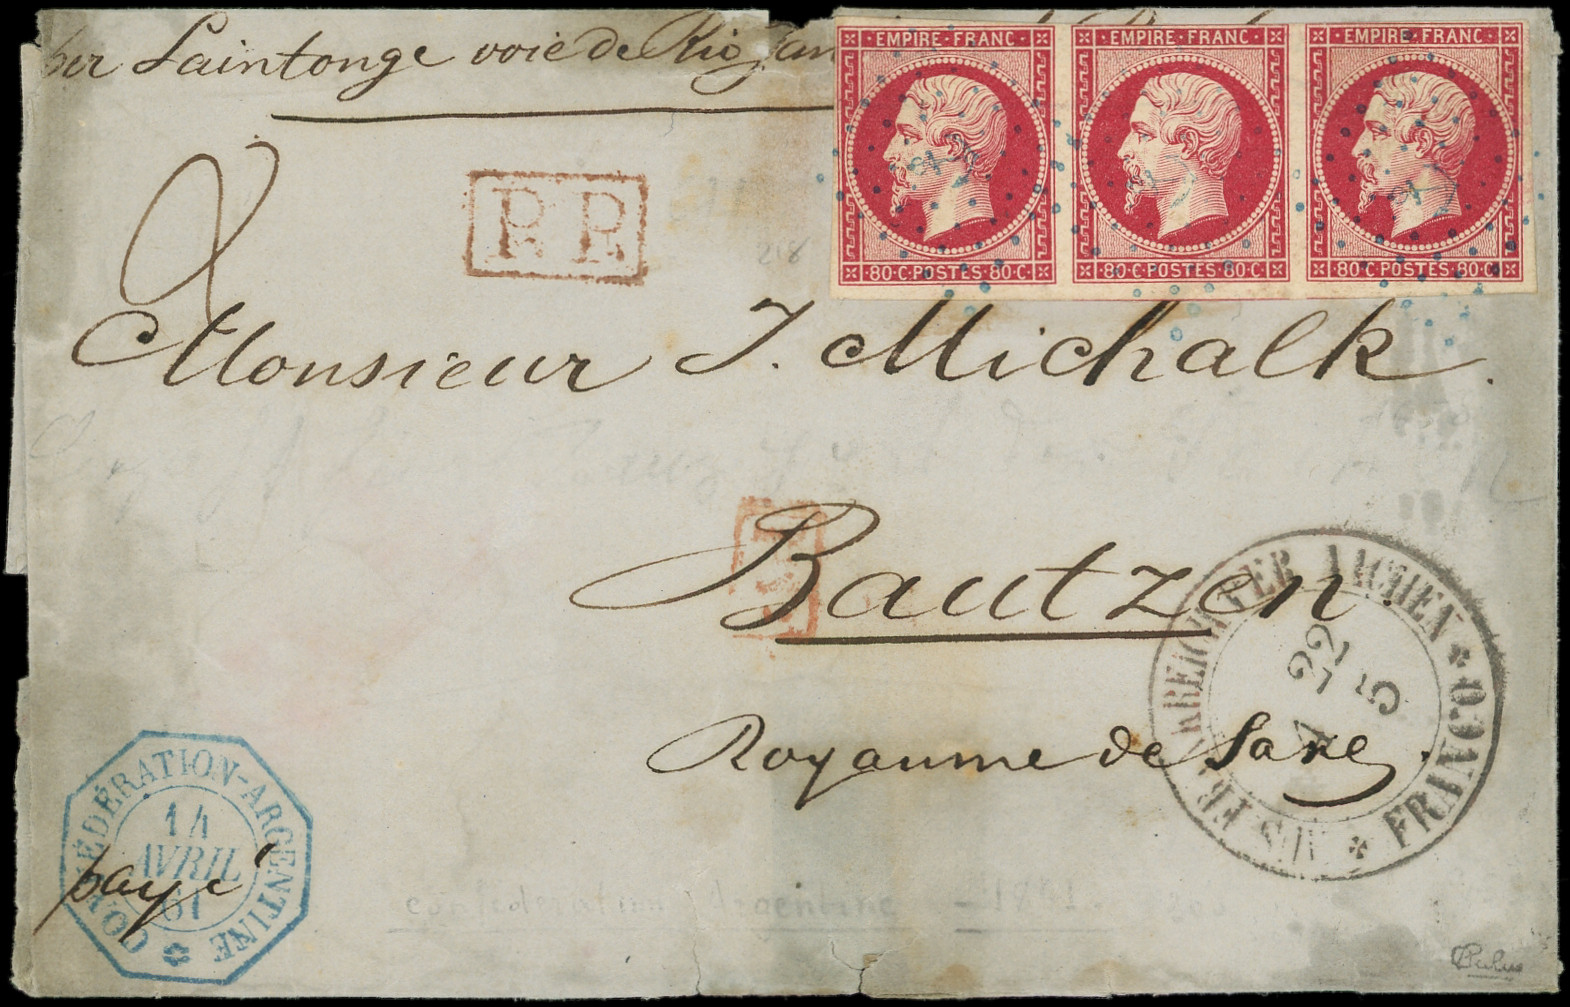 per Saintonge voie de Rio Jan
EMPIRE·FRANC
80·C·POSTES·80·C·
EMPIRE·FRANC
80·C·POSTES·80·C·
EMPIRE·FRANC
80·C·POSTES·80·C·
P.P.
218
Monsieur J. Michalk.
Bautzen.
Royaume de Saxe.
AUS FRANKREICH PER AACHEN * FRANCO *
22 5
CONFÉDÉRATION-ARGENTINE
14
AVRIL
61
payé
confederation Argentine - 1861